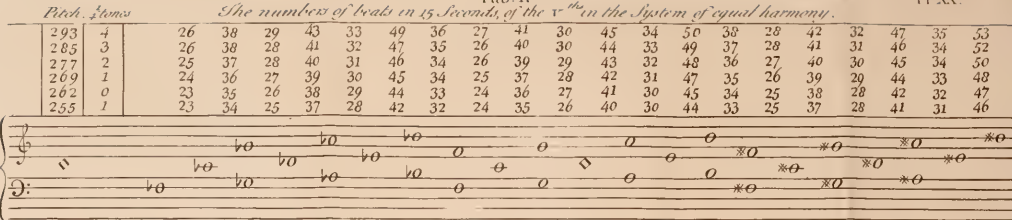 Pitch. ¼tones The numbers of beats in 15 Seconds, of the V ths in the System of equal harmony.
293 4 26 38 29 43 33 49 36 27 41 30 45 34 50 38 28 42 32 47 35 53
285 3 26 38 28 41 32 47 35 26 40 30 44 33 49 37 28 41 31 46 34 52
277 2 25 37 28 40 31 46 34 26 39 29 43 32 48 36 27 40 30 45 34 50
269 1 24 36 27 39 30 45 34 25 37 28 42 31 47 35 26 39 29 44 33 48
262 0 23 35 26 38 29 44 33 24 36 27 41 30 45 34 25 38 28 42 32 47
255 1 23 34 25 37 28 42 32 24 35 26 40 30 44 33 25 37 28 41 31 46